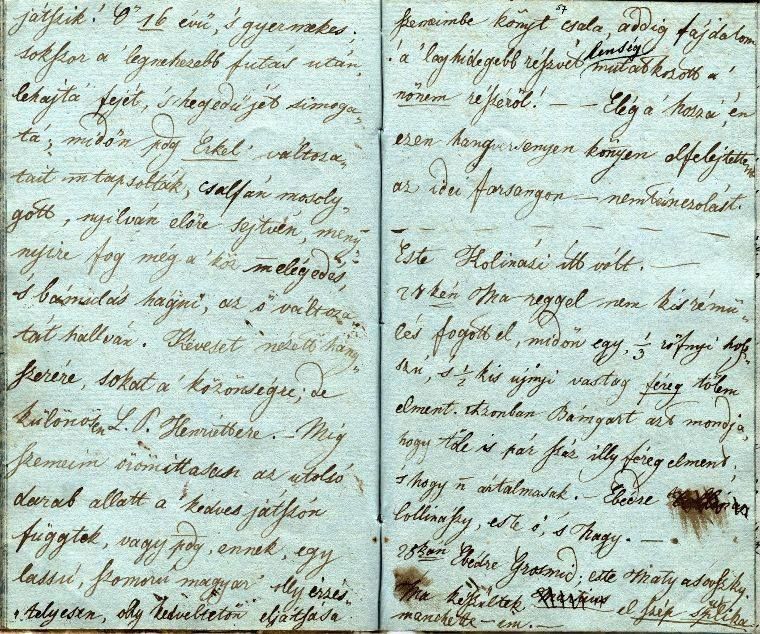 játszik! Ő 16 évű, 's gyermekes:
sokszor a' legnehezebb futás után,
lehajtá fejét, 's hegedűjét simoga-
tá; midőn pdg Erkel változa-
tait m tapsolták, csalfán mosoly-
gott, nyilván előre sejtvén, meny-
nyire fog még a' köz melégedés,
's bámulás hágni, az ő változa
tát hallván. Keveset nézett hang-
szerére, sokat a' közönségre; de
különösen L. P. Henriettere. – Míg
szemeim örömittasan az utolsó
darab allatt a' kedves játszón
függtek, vagy pdg, ennek, egy
lassú, szomorú magyar illy érzés-
telyesen, olly kedveltetőn eljátszása
szemeimbe könyt csala, addig fájdalom
! a' leghidegebb részvétlenség mutatkozott a'
nőnem részéről! – – Elég a' hozzá, én
ezen hangversenyen könyen elfelejtettem
az idei farsangon – nemtánczolást.
Este Kolinási itt vólt. –
27kén Ma reggel nem kis rémü-
lés fogott el, midőn egy, 1/3 rőfnyi hosz-
szú, s 1/2 kis újnyi vastag féreg tőlem
elment. Azonban Bámgart azt mondja,
hogy tőle is pár száz illy féreg elment;
's hogy n ártalmasak. – Ebédre
Collinaszy, este ő, 's Nagy. –
28kan Ebédre Grosmid; este Matyasovszky.
Ma készültek el szép szplika
manchette-em. –